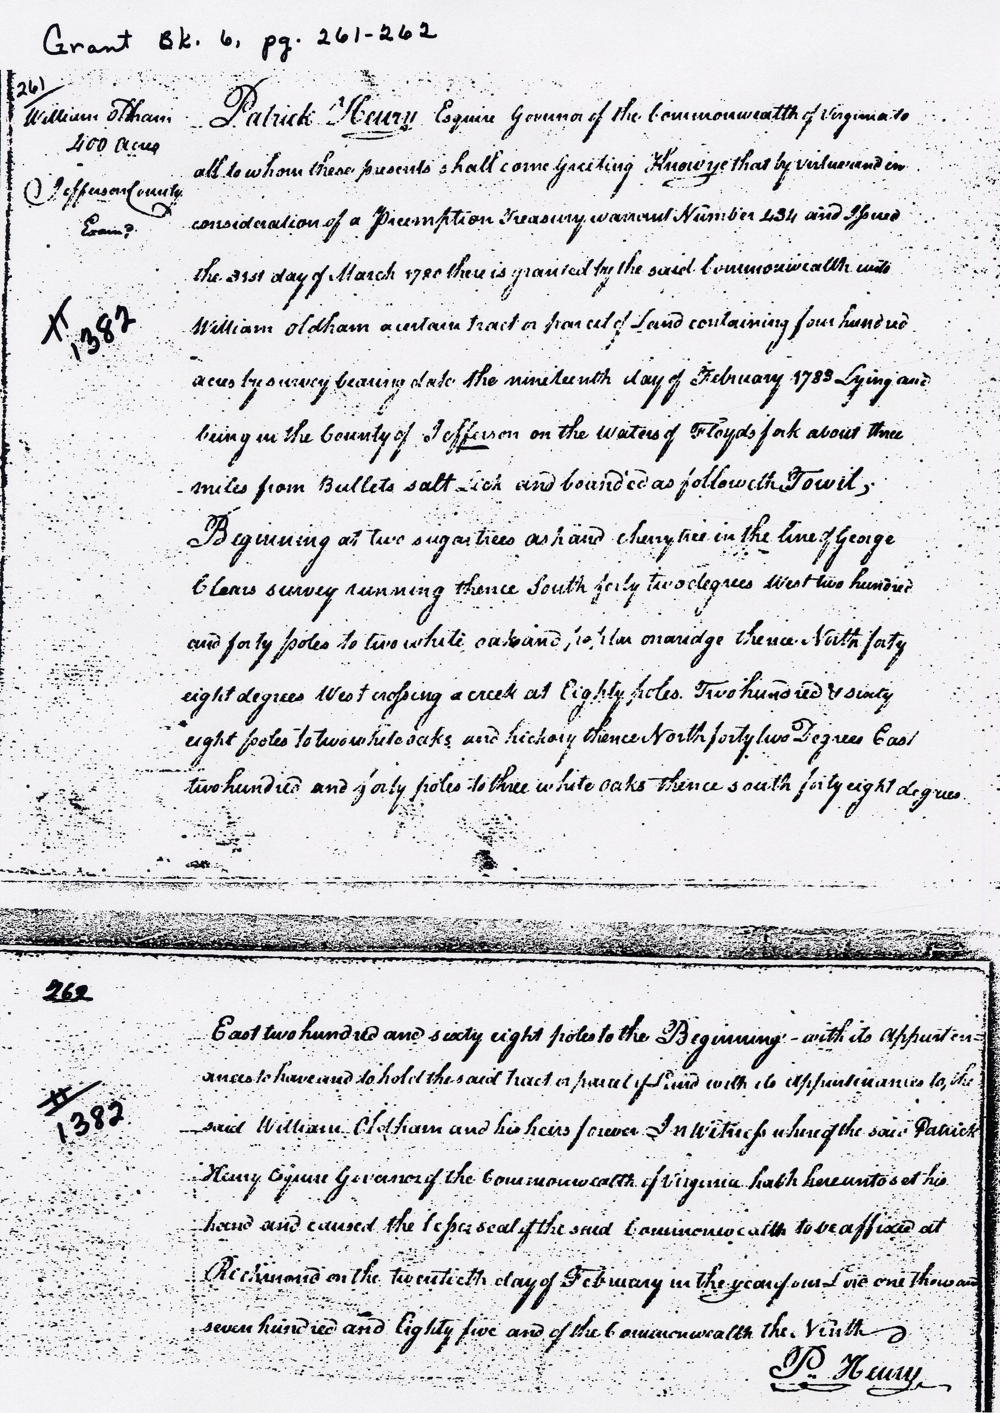 Grant Bk. 6, pg. 261-262
261
William Oldham
400 Acres
Jefferson County
Exam?
Patrick Henry Esquire Govenor of the Commonwealth of Virginia to
all to whom these presents shall come Greeting Know ye that by virtue and in
consideration of a Preemption Treasury warrant Number 434 and Issued
the 31st day of March 1780 there is granted by the said Commonwealth unto
William Oldham a certain tract or parcel of Land containing four hundred
acres by survey bearing date the nineteenth day of February 1783 Lying and
being in the County of Jefferson on the waters of Floyds fork about three
miles from Bullets salt Lick and bounded as followeth Towit,
Beginning at two sugartrees ash and cherrytree in the line of George
Clears survey running thence South forty two degrees West two hundred
and forty poles to two white oaks and poplar on a ridge thence North forty
eight degrees West crossing a creek at Eighty poles. Two hundred & sixty
eight poles to two white oaks and hickory thence North forty two Degrees East
two hundred and forty poles to three white oaks thence south forty eight degrees
# 1382
262
East two hundred and sixty eight poles to the Beginning - with its Appurten=
ances to have and to hold the said tract or parcel of Land with its Appurtenances to, the
said William Oldham and his heirs forever In Witness whereof the said Patrick
Henry Esquire Governor of the Commonwealth of Virginia hath hereunto set his
hand and caused the lesser seal of the said Commonwealth to be affixed at
Richmond on the twentieth day of February in the year of our Lord one thousand
seven hundred and Eighty five and of the Commonwealth the Ninth
P. Henry
# 1382